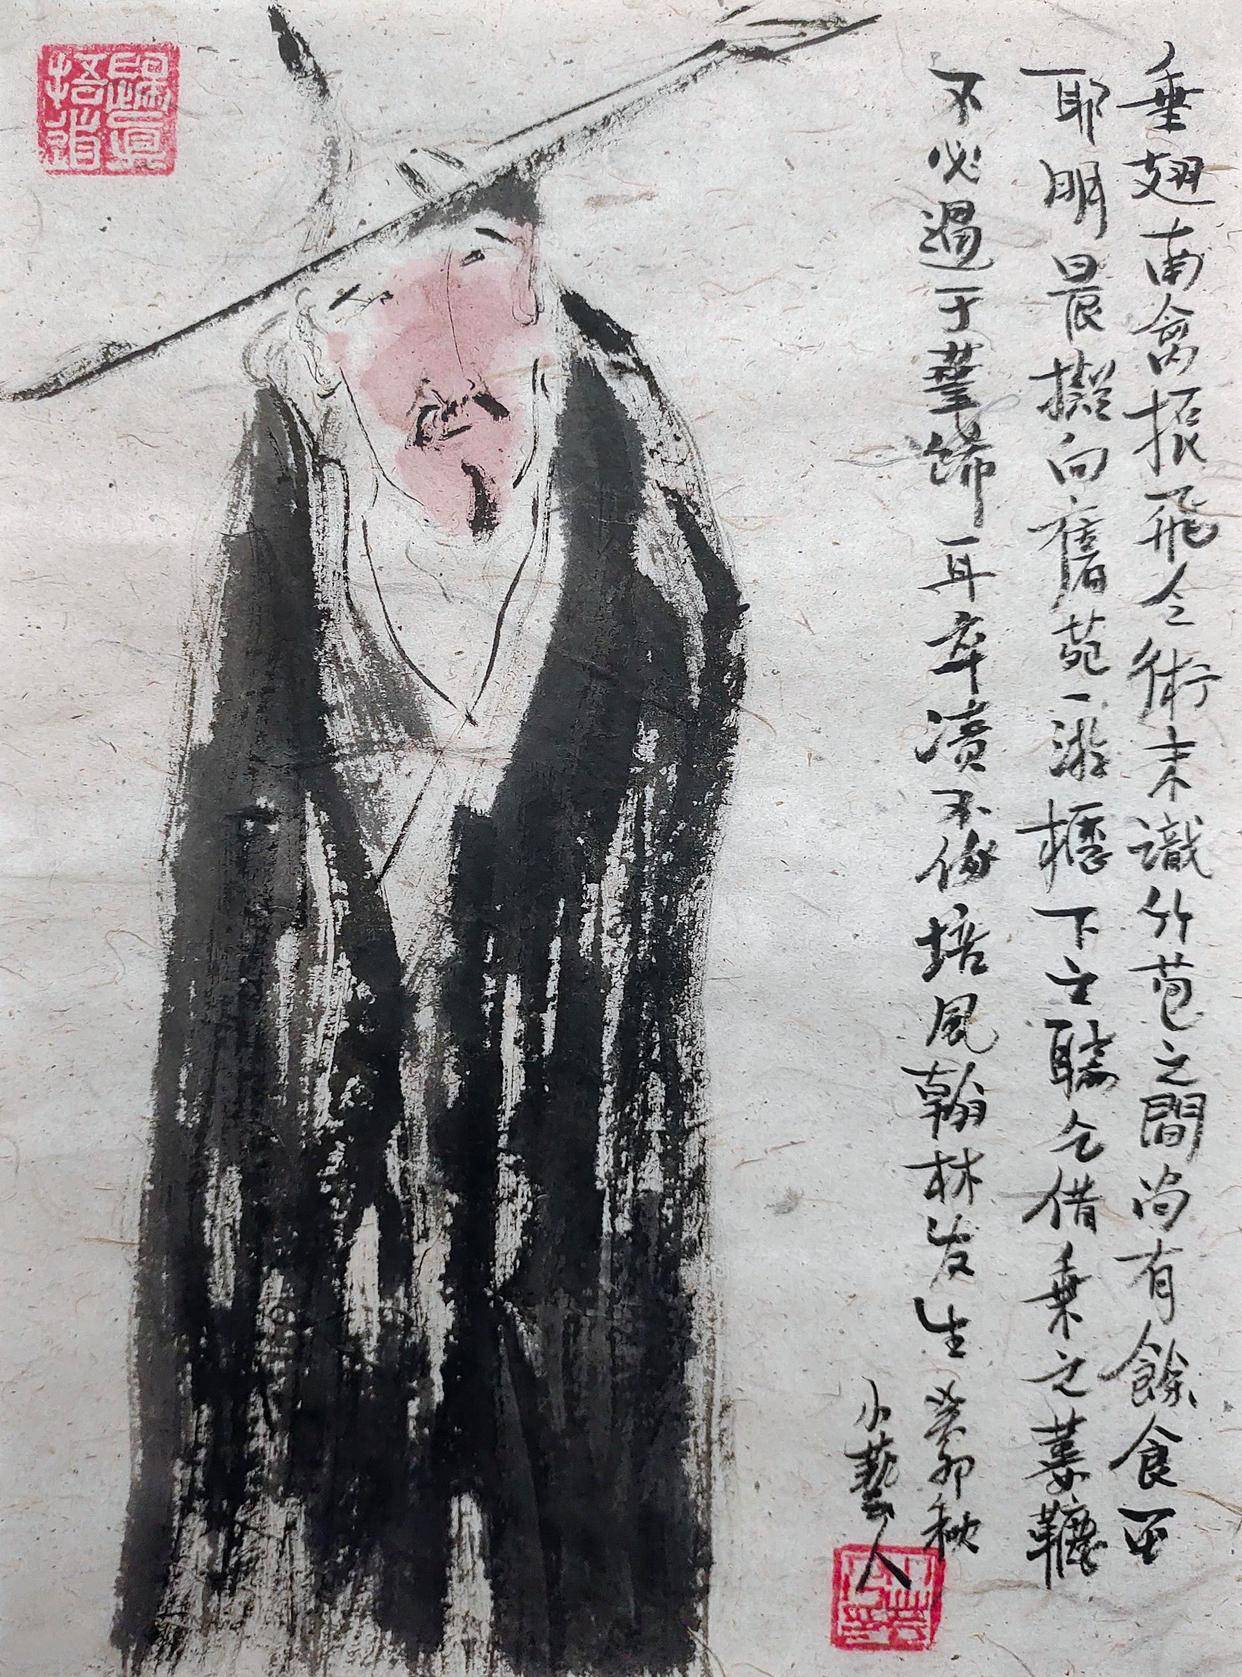 垂翅南禽振飛仑術未識竹苞之間尚有餘食否
耶明晨擬向舊苑一游櫪下之騧乞借乘之蔞韉
不必過于華飾耳率瀆不偹培風翰林发生
癸卯秋
小藝人